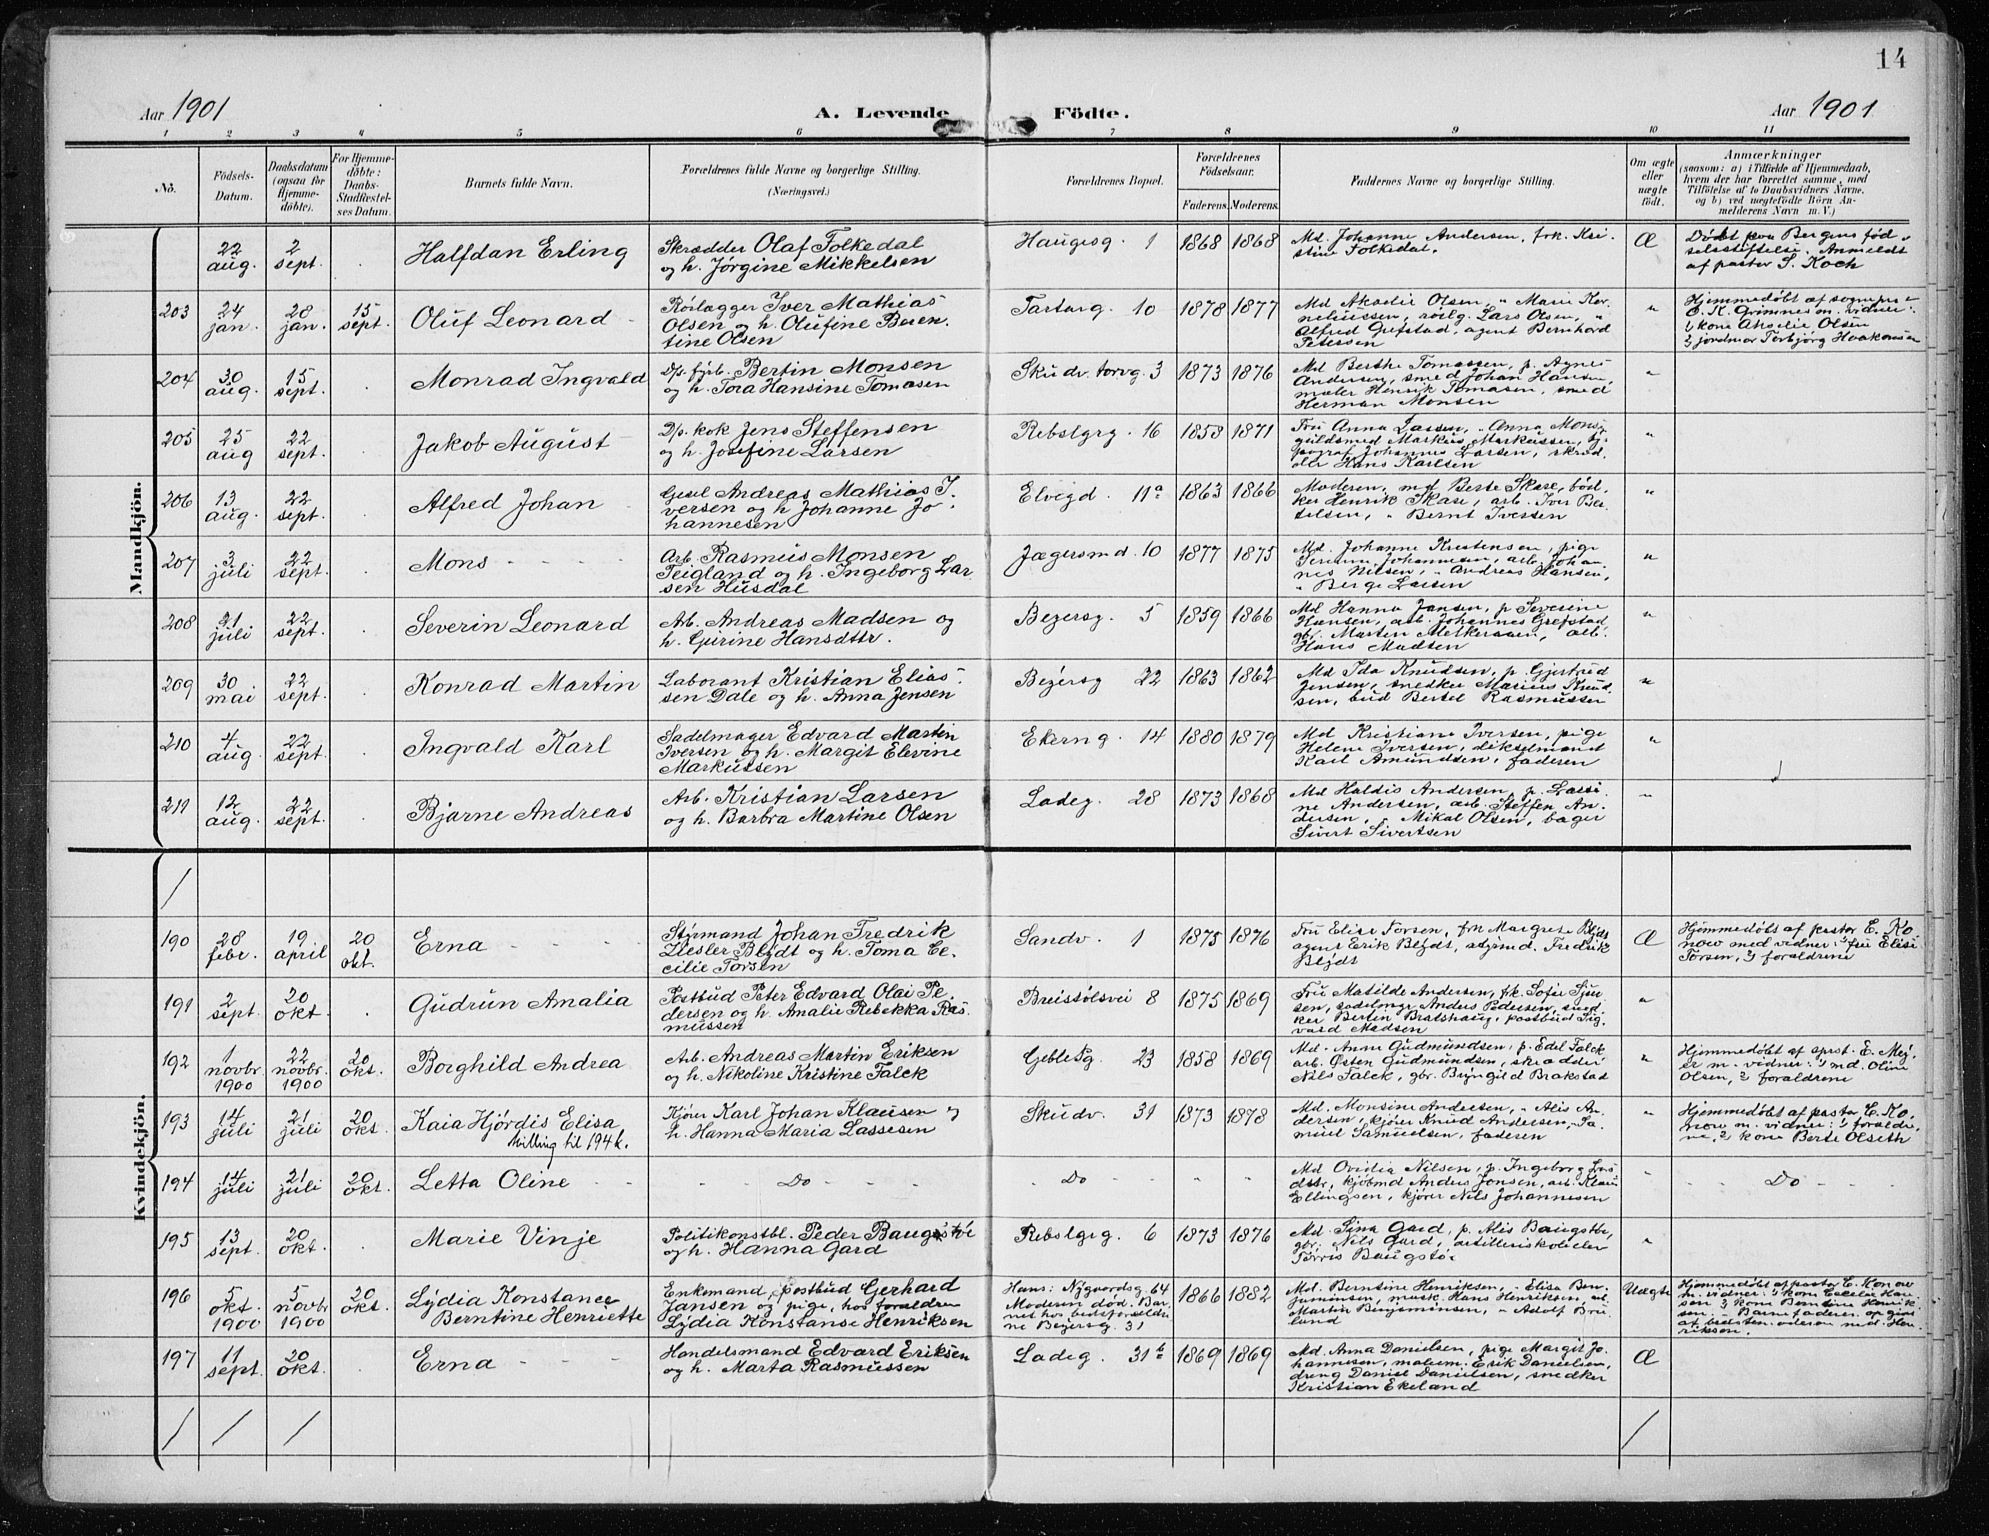 14
Aar 1901
A. Levende Födte.
Aar 1901
1 2 3 4 5 6 7 8 9 10 11
No.
Födsels-Datum.
Daabsdatum (ogsaa for Hjemme-döbte).
For Hjemme-döbte: Daabs-Stadfæstel-ses Datum.
Barnets fulde Navn.
Forældrenes fulde Navne og borgerlige Stilling.
(Næringsvei.)
Forældrenes Bopæl.
Forældrenes Födselsaar.
Faderens. Moderens.
Faddernes Navne og borgerlige Stilling.
Om ægte eller uægte födt.
Anmærkninger
(saasom: a) i Tilfælde af Hjemmedaab,
hvem der har forrettet samme, med
Tilföielse af to Daabsvidners Navne,
og b) ved uægtefödte Börn An-
melderens Navn m. V.)
Mandkjön.
22 aug. 2 sept. Halfdan Erling
Skrædder Olaf Folkedal
og h. Jörgine Mikkelsen
Haugesg. 1 1868 1868
Md. Johanne Andersen, frk. Kri-
stine Folkedal.
Æ
Födt paa Bergens föd-
selsstiftelse. Anmeldt
af pastor S. Koch
203 24 jan. 28 jan. 15 sept. Oluf Leonard
Rörlægger Iver Mathias
Olsen og h. Olufine Beren-
tine Olsen
Tartarg. 10 1878 1877
Md Akselie Olsen, " Marie Kor-
neliussen, rörlg. Lars Olsen, "
Alfred Grefstad, agent Bernhard
Petersen
"
Hjemmedöbt af sognepr.
O. K. Grimnes m. vidner:
1) kone Akselie Olsen
2) jordmor Torbjörg Haakonsen
204 30 aug. 15 sept. Monrad Ingvald
Dp. fyrb. Bertin Monsen
og h. Tora Hansine Tomasen
Skudv. torvg. 3 1873 1876
Md Berthe Tomassen, p. Agnes
Andersen, smed Johan Hansen,
maler Henrik Tomasen, smed
Herman Monsen
"
205 25 aug 22 sept. Jakob August
Dp. kok Jens Steffensen
og h. Josefine Larsen
Rebslgrg. 16 1853 1871
Fru Anna Larsen, " Anna Mons,
guldsmed Markus Markussen, ty-
pograf Johannes Larsen, skræd-
der Hans Karlsen
"
206 13 aug. 22 sept. Alfred Johan
Gesel Andreas Mathias I-
versen og h Johanne Jo-
hannesen
Elvegd. 11a 1863 1866
Moderen, md Berte Skare, böd-
ker Henrik Skare, arb. Iver Ber-
telsen, " Bernt Iversen
"
207 3 juli 22 sept. Mons
Arb. Rasmus Monsen
Teigland og h. Ingeborg Lar-
sen Husdal
Jægersmd. 10 1877 1875
Md. Johanne Kristensen, pige
Serine Johannesen, arb. Johan-
nes Nilsen, " Andreas Hansen,
" Berge Larsen
"
208 21 juli 22 sept. Severin Leonard
Arb. Andreas Madsen og
h. Gurine Hansdttr.
Beyersg. 5 1859 1866
Md Hanna Jansen, p Severine
Hansen, arb. Johannes Grefstad,
gbr. Marten Melkersen, arb.
Hans Madsen
209 30 mai 22 sept. Konrad Martin
Laborant Kristian Elias-
sen Dale og h. Anna Jensen
Beyersg 22 1863 1862
Md Ida Knudsen, p. Gjertrud
Jensen, snedker Marius Knud-
sen, bud Bertel Rasmussen
"
210 4 aug. 22 sept. Ingvald Karl
Sadelmager Edvard Martin
Iversen og h. Margit Elevine
Markussen
Ekerng. 14 1880 1879
Md Kristiane Iversen, pige
Helene Iversen, dikselmand
Karl Amundsen, faderen
"
211 12 aug. 22 sept. Bjarne Andreas
Arb. Kristian Larsen
og h. Barbra Martine Olsen
Ladeg. 28 1873 1868
Md Haldis Andersen, p. Lassi-
ne Andersen, arb. Steffen An-
dersen, " Mikal Olsen, bager
Sivert Sivertsen
"
Kvindekjön.
190 28 febr. 19 april 20 okt. Erna
Styrmand Johan Fredrik
Ziesler Blydt og h. Toma Ce-
cilie Torsen
Sandv. 1 1875 1876
Fru Elise Torsen, frk Margrete Blydt
agent Erik Blydt, styrmd. Fredrik
Blydt
Æ
Hjemmedöbt af pastor E. Ko-
now med vidner: 1) fru Elise
Torsen, 2) forældrene
191 2 sept. 20 okt. Gudrun Amalia
Postbud Peter Edvard Olai Pe-
dersen og h. Amalie Rebekka Ras-
mussen
Breistölsvei 8 1875 1869
Fru Matilde Andersen, frk. Sofie
sen, Anders Pedersen, sned-
ker Bertin Bratshaug, postbud Ing-
vard Madsen
"
192 1 novbr 1900 22 novbr. 1900 20 okt. Borghild Andrea
Arb. Andreas Martin Eriksen
og h. Nikoline Kristine Falck
Geblesg. 23 1858 1869
Md. Anne Gudmundsen, p. Edel Falck
arb. Østen Gudmundsen, skrædder
Nils Falck, gbr. Bryngild Brakstad
"
Hjemmedöbt af sprst. E. Mey-
er m. vidner: 1) md. Oline
Olsen, 2) forældrene
193 14 juli 21 juli 20 okt. Kaia Hjördis Elisa
tvilling til 194 k.
Kjörer Karl Johan Klausen og
h. Hanna Maria Lassesen
Skudv. 31 1873 1878
Md. Monsine Andersen, " Alis An-
dersen, kjörer Knud Andersen, Sa-
muel Samuelsen, faderen
"
Hjemmedöbt af pastor E. Ko-
now m. vidner: 1) forældre-
ne, 2) kone Berte Olseth
194 14 juli 21 juli 20 okt. Letta Oline
Do
Do
Md Ovidia Nilsen, p. Ingeborg Lars-
dttr, kjöbmd Anders Jonsen, arb. Klaus
Ellingsen, kjörer Nils Johannesen
Do
195 13 sept. 20 okt. Marie Vinje
Politikonstbl. Peder Baugstö
og h. Hanna Gard
Rebslgrg 6 1873 1876
Md. Sina Gard, p. Alis Baugstö,
gbr. Nils Gard, artilleriskoleelev
Torris Baugstö
"
196 5 okt. 1900 5 novbr 1900 20 okt. Lydia Konstance
Berntine Henriette
Enkemand, postbud Gerhard
Jansen og pige, hos forældren
Lydia Konstanse Henriksen
Hans: Nygaardsg. 64
Moderen död. Bar-
net hos bedsforældre-
ne Beyersg. 31
1866 1882
Md. Berntine Henriksen, " Elisa Ben-
jaminsen, musk. Hans Henriksen arb.
Martin Benjaminsen, " Adolf Bru-
land
Uægte
Hjemmedöbt af pastor E. Konow
m. vidner: 1) kone Cecilie Han-
sen 2) kone Berntine Henrik-
sen. Barnefaderen opgives
af bedstemoderen md. Hen-
riksen.
197 11 sept. 20 okt. Erna
Handelsmand Edvard Eriksen
og h. Marta Rasmussen
Ladeg. 31b 1869 1869
Md. Anna Danielsen, pige Margit Jo-
hannesen, malerm. Erik Danielsen,
dreng Daniel Danielsen, snedker
Kristian Ekeland
Æ